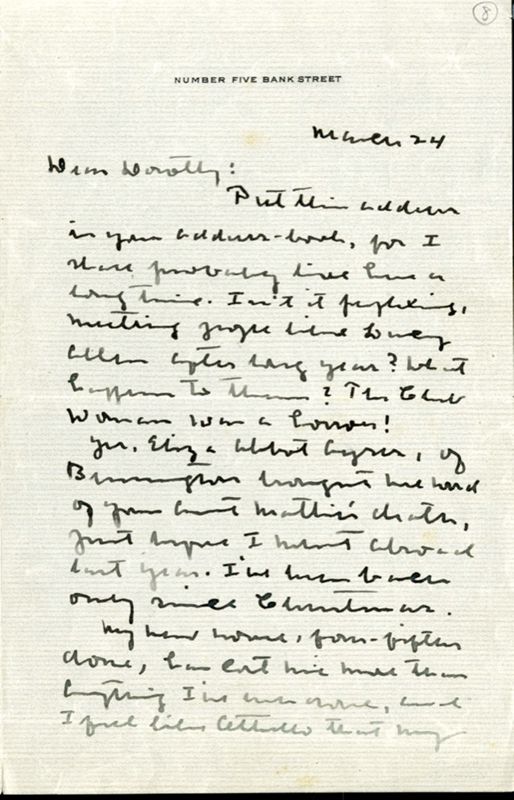 8
NUMBER FIVE BANK STREET
March 24
Dear Dorothy:
Put this address
in your address-book, for I
shall probably live here a
long time. Isn't it perplexing,
meeting people like
after long years? What
happens to them? The Club
Woman was a horror!
Yes, of
Burlington brought me word
of your Aunt Mattie's death,
just before I went abroad
last year. I've been back
only since Christmas.
My new novel, four-fifths
done, has cost me more than
anything I've ever done, and
I feel like Othello that my